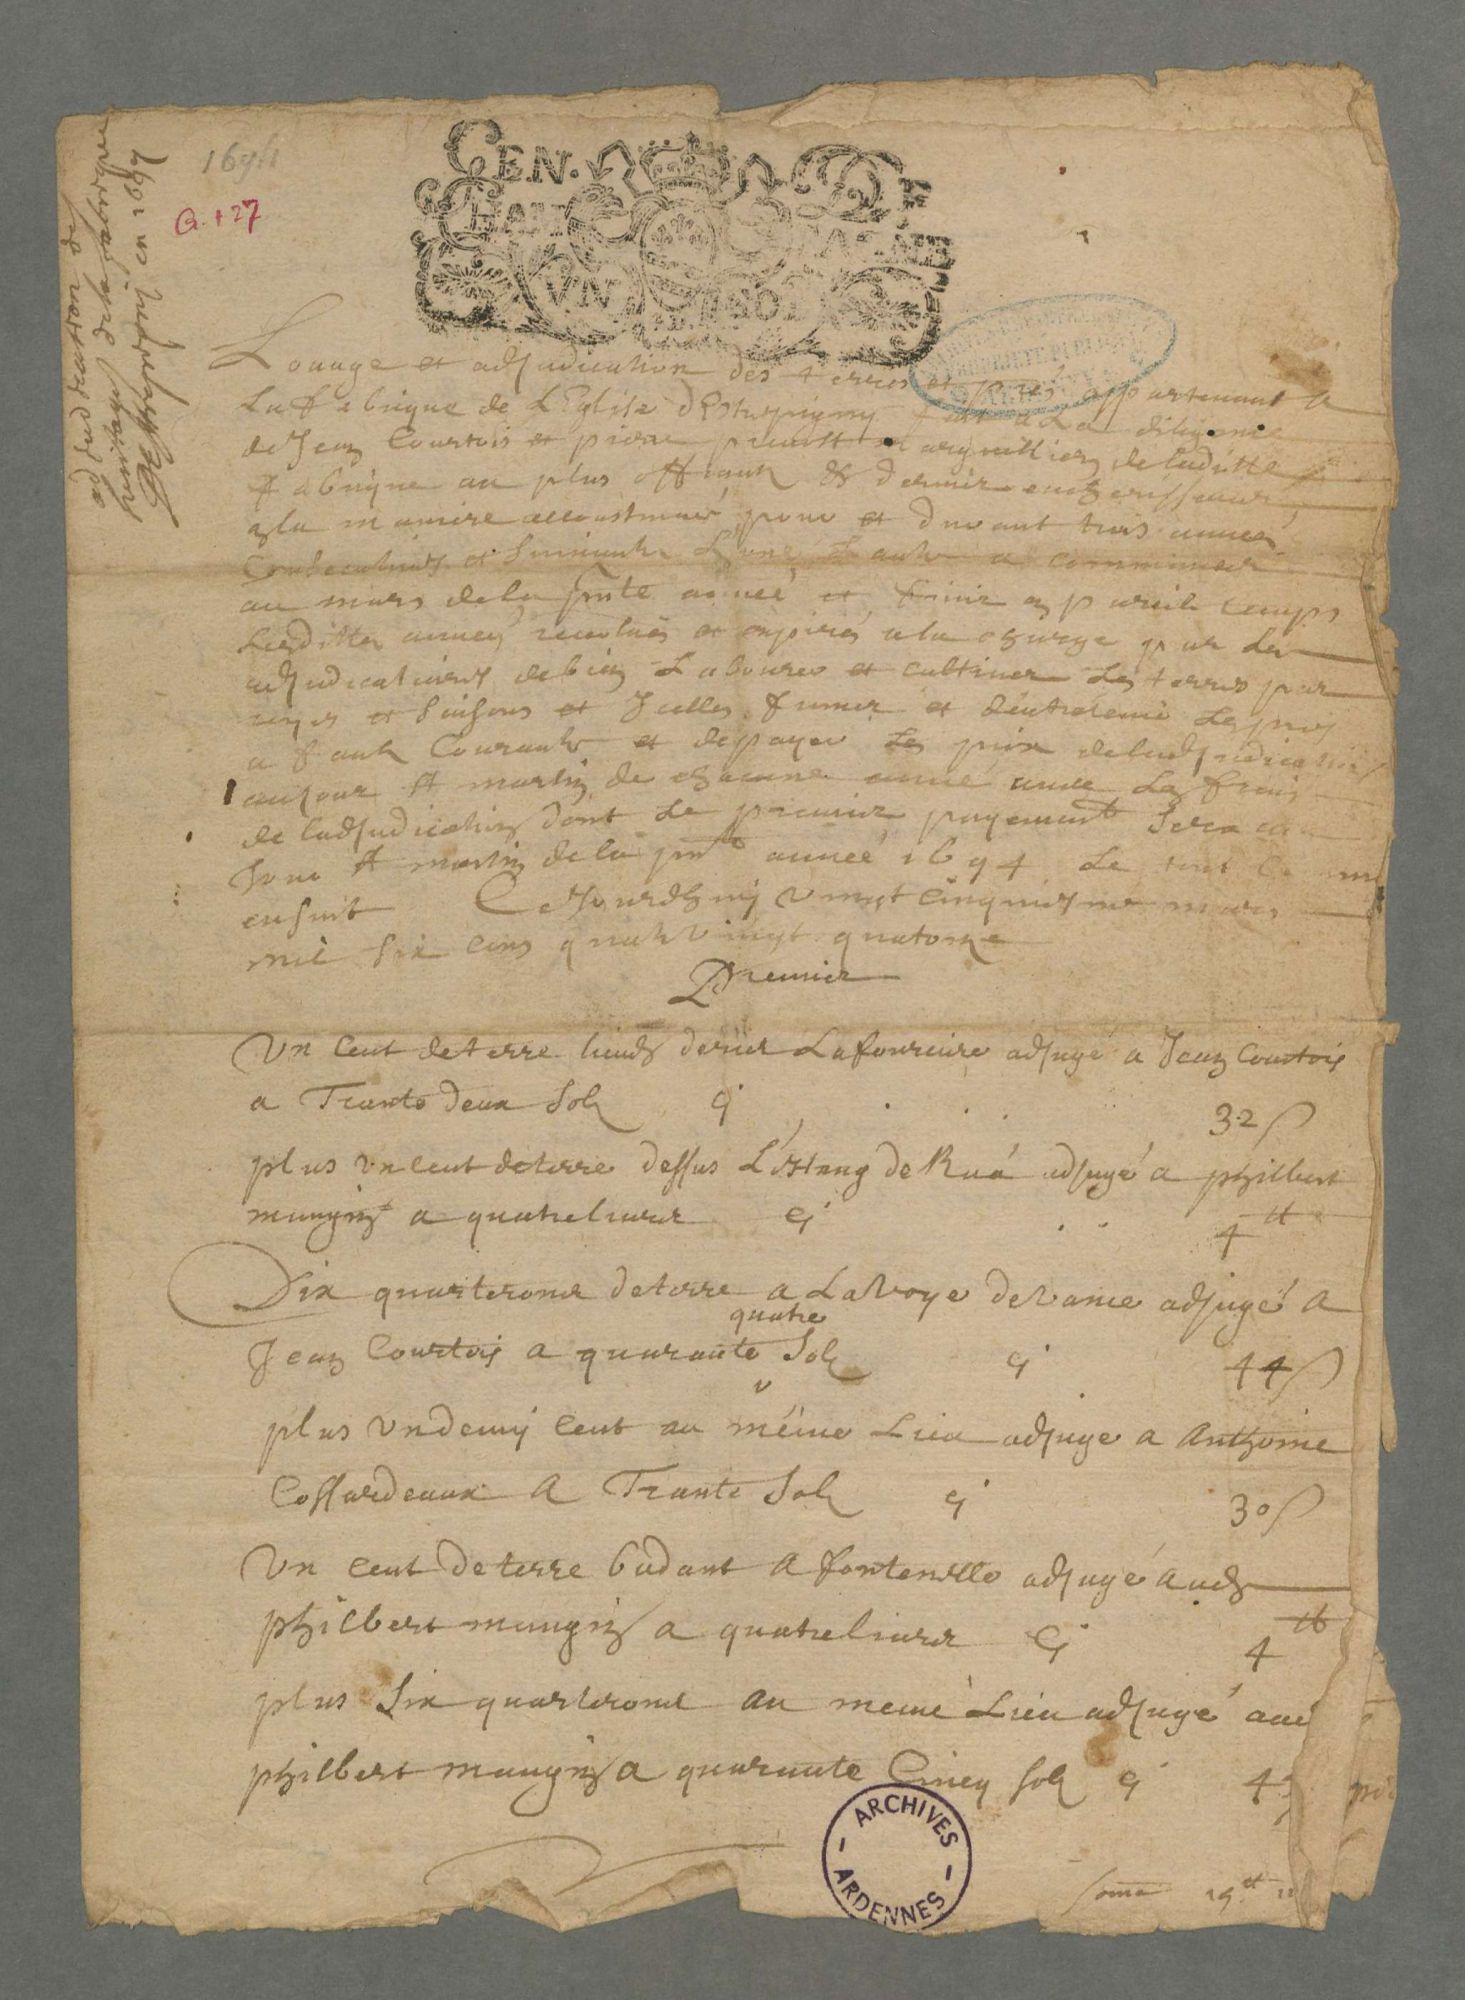 addudication des
heritages de la fabrique
de Strepigny en 1694
1694
G. 127
GEN. DE
CHAL
VN SOL
Louage et adjudication des terres et prés appartenant a
La fabrique de L'Eglise dEstrepigny fait a La diligence
de Jean Courtois et pierre preuost marguilliers de laditte
fabrique au plus offrant & dernier encherisseur
a la maniere accoustumée pour et durant trois années
Consecutiues et suiuante L'une L'autre a commencer
au mars de la pnte année et finir en pareil temps
Lesdittes années reuolues et expirés a la charge par Les
adjudicataires de bien Labourer et cultiuer Les terres par
royes et saisons et Jcelles fumer et d'entretenir Les prés
a faulx Courante et de payer Les prix de ladjudication
au jour St martin de chacune année auec Les frais
de ladjudication dont Le premier payement sera au
Jour St martin de la pnte année 1694 Le tout Comme
ensuit Cejourdhuy vingt cinquiesme mars
mil six cens quatre vingt quatorze
Premier
Vn Cent de terre lieudit derier Lafouriere adjugé a Jean Courtois
a Trante deux Solz cy 32 s
plus vn cent de terre dessus L'éstang de Rué adjugé a philbert
mangin a quatre liures cy 4 tt
Dix quarterons de terre a La Voye de Vance adjugé A
quatre
Jean Courtois a quarante Solz cy 44 s
plus Vn demy Cent au méme Lieu adjugé a Anthoine
Cossardeaux A Trante Solz cy 30 s
Vn Cent de terre budant A fontenelle adjugé Audt
philbert mangin a quatre liures cy 4 tt
plus Six quarterons au meme Lieu adjugé aud
philbert mangin a quarante Cincq solz cy 45
some 19 tt 11
ARCHIVES
ARDENNES